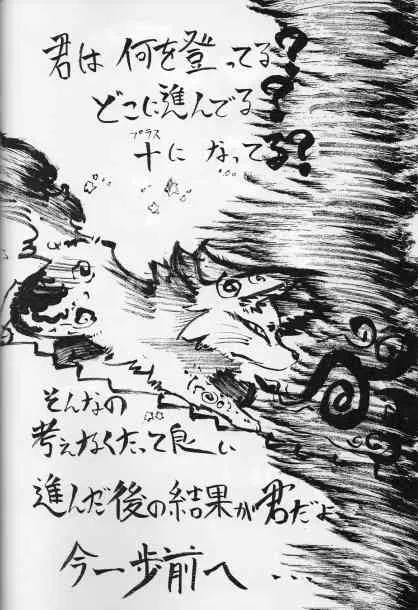 君は何を登ってる?
どこに進んでる?
プラス
十になってる?
そんなの
考えなくたって良い
進んだ後の結果が君だよ
今一歩前へ...